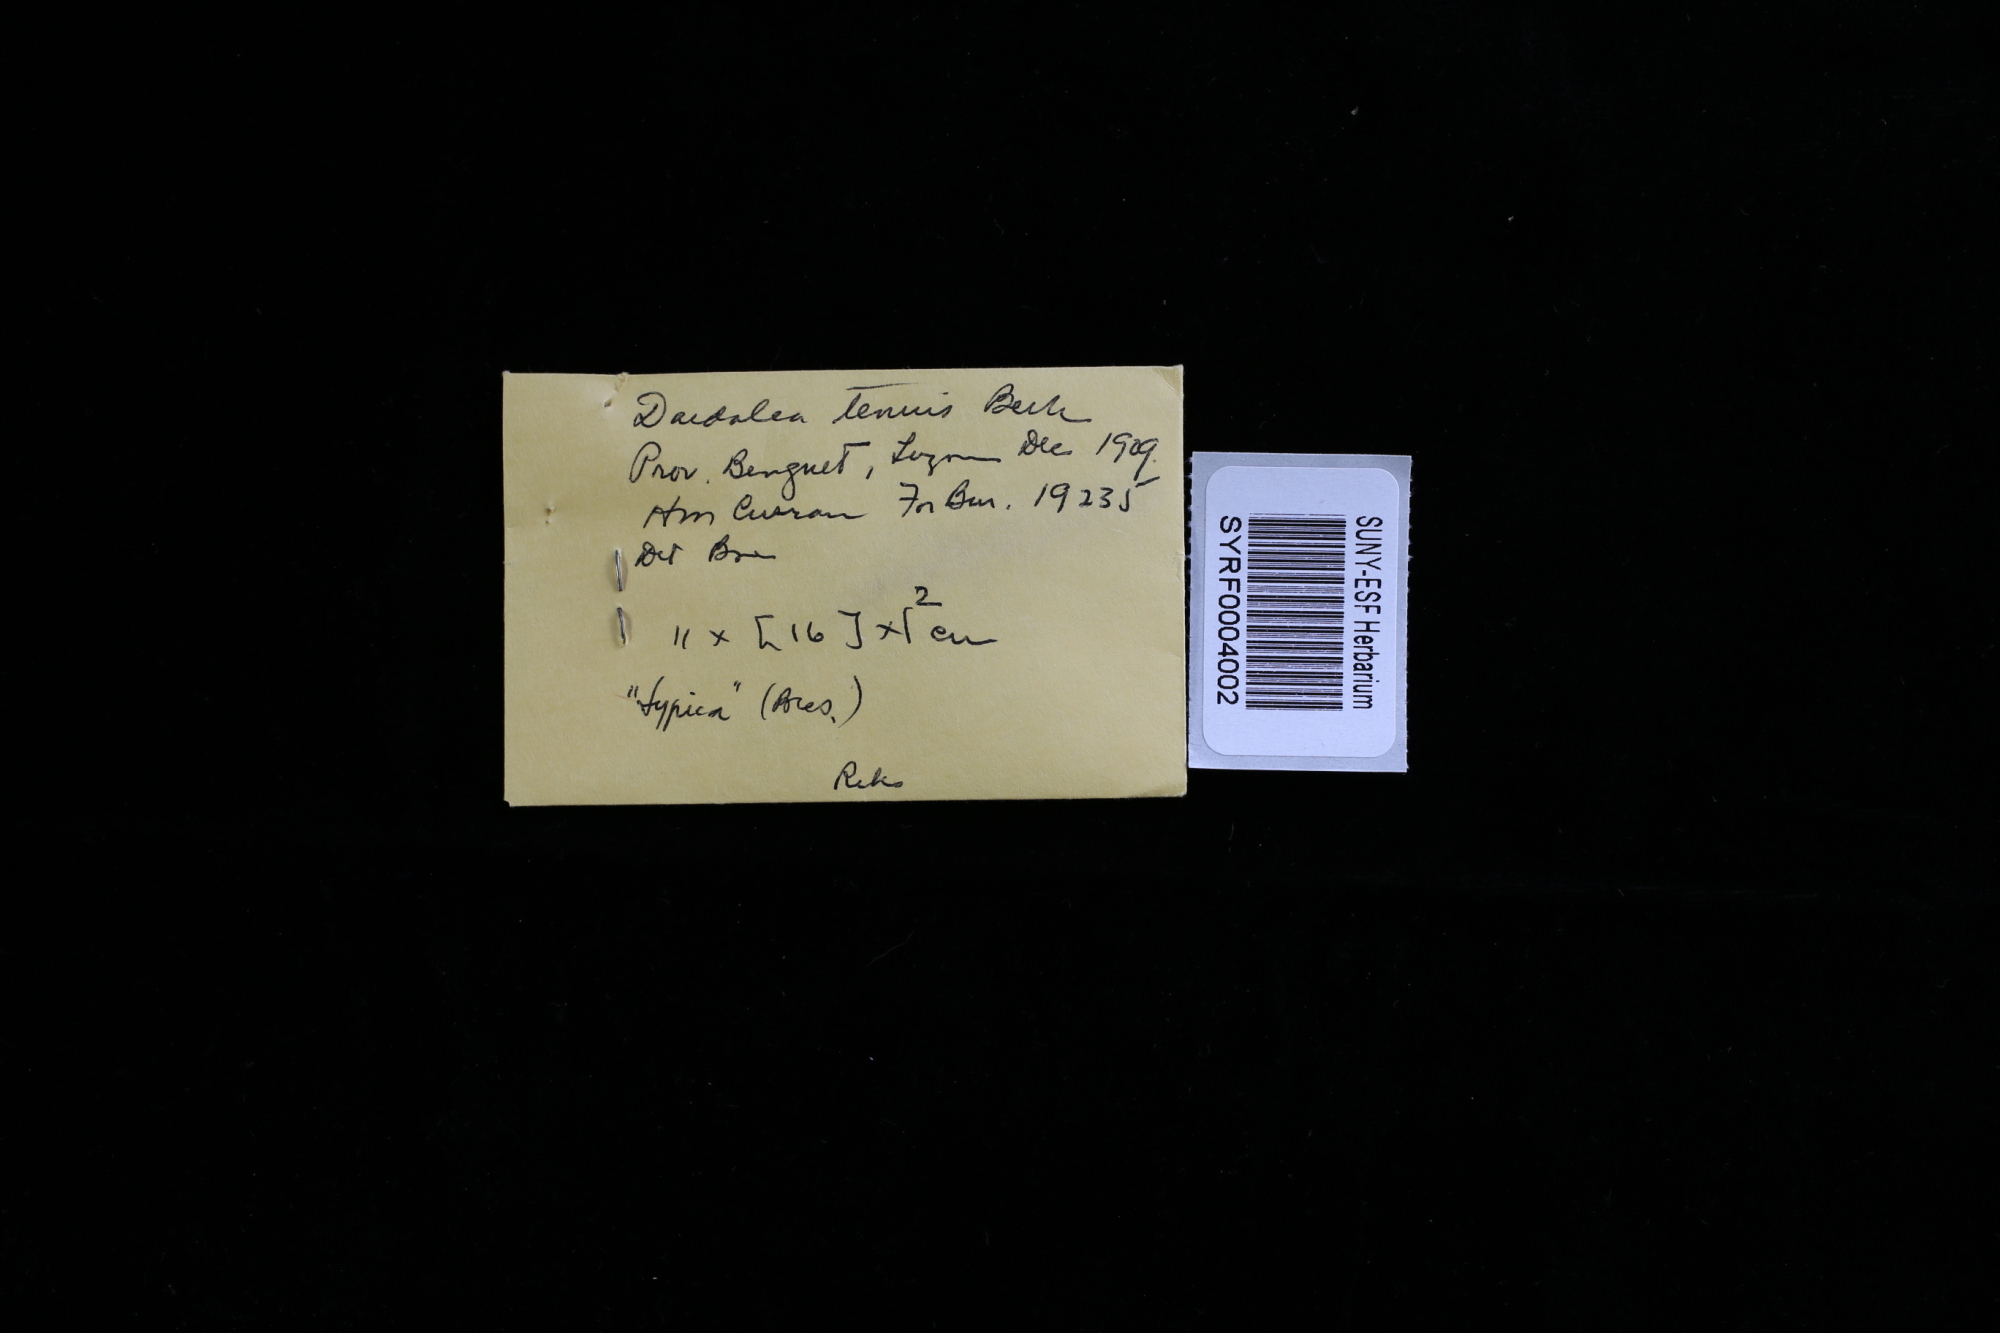 Daedalea tenuis Berk
Prov. Benguet, Luzon Dec 1909.
HM Curran For Bur. 19235
Det Bres
11 x [16] x 1 2 cm
"typica" (Bres.)
SUNY-ESF Herbarium
SYRF0004002